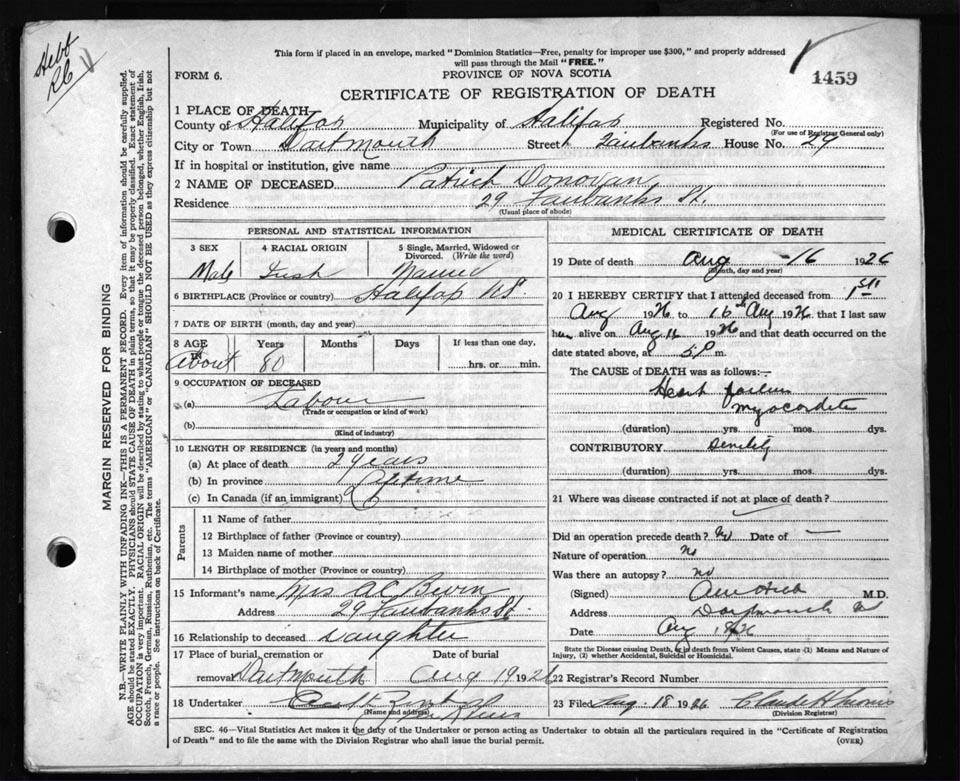 Hebb
This form if placed in an envelope, marked "Dominion Statistics—Free, penalty for improper use $300," and properly addressed
will pass through the Mail "FREE."
1459
FORM 6.
PROVINCE OF NOVA SCOTIA
CERTIFICATE OF REGISTRATION OF DEATH
1 PLACE OF DEATH
County of Halifax Municipality of Halifax Registered No.
(For use of Registrar General only)
City or Town Dartmouth Street Fairbanks House No. 27
If in hospital or institution, give name
2 NAME OF DECEASED Patrick Donovan
Residence 29 Fairbanks St.
(Usual place of abode)
PERSONAL AND STATISTICAL INFORMATION
3 SEX 4 RACIAL ORIGIN 5 Single, Married, Widowed or
Divorced. (Write the word)
Male Irish Married
6 BIRTHPLACE (Province or country) Halifax NS
7 DATE OF BIRTH (month, day and year)
8 AGE Years Months Days If less than one day,
About 80 hrs. or min.
9 OCCUPATION OF DECEASED
(a) Labour
(Trade or occupation or kind of work)
(b)
(Kind of industry)
10 LENGTH OF RESIDENCE (in years and months)
(a) At place of death 2 years
(b) In province Lifetime
(c) In Canada (if an immigrant)
Parents
11 Name of father
12 Birthplace of father (Province or country)
13 Maiden name of mother
14 Birthplace of mother (Province or country)
15 Informant's name Mrs A C
Address 29 Fairbanks St.
16 Relationship to deceased Daughter
17 Place of burial, cremation or Date of burial
removal Dartmouth Aug 19 1926
18 Undertaker
(Name and address)
MEDICAL CERTIFICATE OF DEATH
19 Date of death Aug 16 1926
(Month, day and year)
20 I HEREBY CERTIFY that I attended deceased from 1st
Aug 1926 to 16th Aug 1926 that I last saw
him alive on Aug 16 1926 and that death occurred on
the date stated above, at 5 P m.
The CAUSE of DEATH was as follows:—
Heart failure
Myocarditis
(duration) yrs. mos. dys.
CONTRIBUTORY Senility
(duration) yrs. mos. dys.
21 Where was disease contracted if not at place of death?
Did an operation precede death? No Date of —
Nature of operation No
Was there an autopsy? No
(Signed) M.D.
Address Dartmouth
Date Aug 1926
State the Disease causing Death, or in death from Violent Causes, state (1) Means and Nature of
Injury, (2) whether Accidental, Suicidal or Homicidal.
22 Registrar's Record Number
23 Filed Aug. 18 1926
(Division Registrar)
SEC. 46—Vital Statistics Act makes it the duty of the Undertaker or person acting as Undertaker to obtain all the particulars required in the "Certificate of Registration
of Death" and to file the same with the Division Registrar who shall issue the burial permit. (OVER)
MARGIN RESERVED FOR BINDING
N.B.—WRITE PLAINLY WITH UNFADING INK—THIS IS A PERMANENT RECORD. Every item of information should be carefully supplied.
AGE should be stated EXACTLY. PHYSICIANS should STATE CAUSE OF DEATH in plain terms, so that it may be properly classified. Exact statement of
OCCUPATION is very important. RACIAL ORIGIN will be described by stating to what people or tongue the deceased person belonged, whether English, Irish,
Scotch, French, German, Russian, Ruthenian, etc. The terms "AMERICAN" or "CANADIAN" SHOULD NOT BE USED as they express citizenship but not
a race or people. See instructions on back of Certificate.